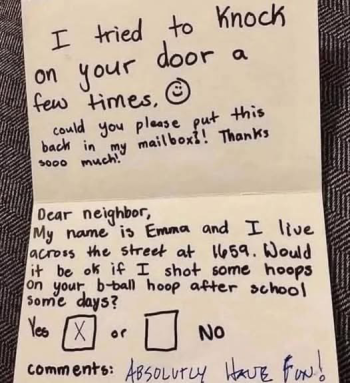 I tried to Knock
on your door a
few times. ☺
could you please put this
back in my mailbox?! Thanks
sooo much!
Dear neighbor,
My name is Emma and I live
across the street at 1659. Would
it be ok if I shot some hoops
on your b-ball hoop after school
some days?
Yes X or NO
comments: ABSOLUTLY HAVE FUN!